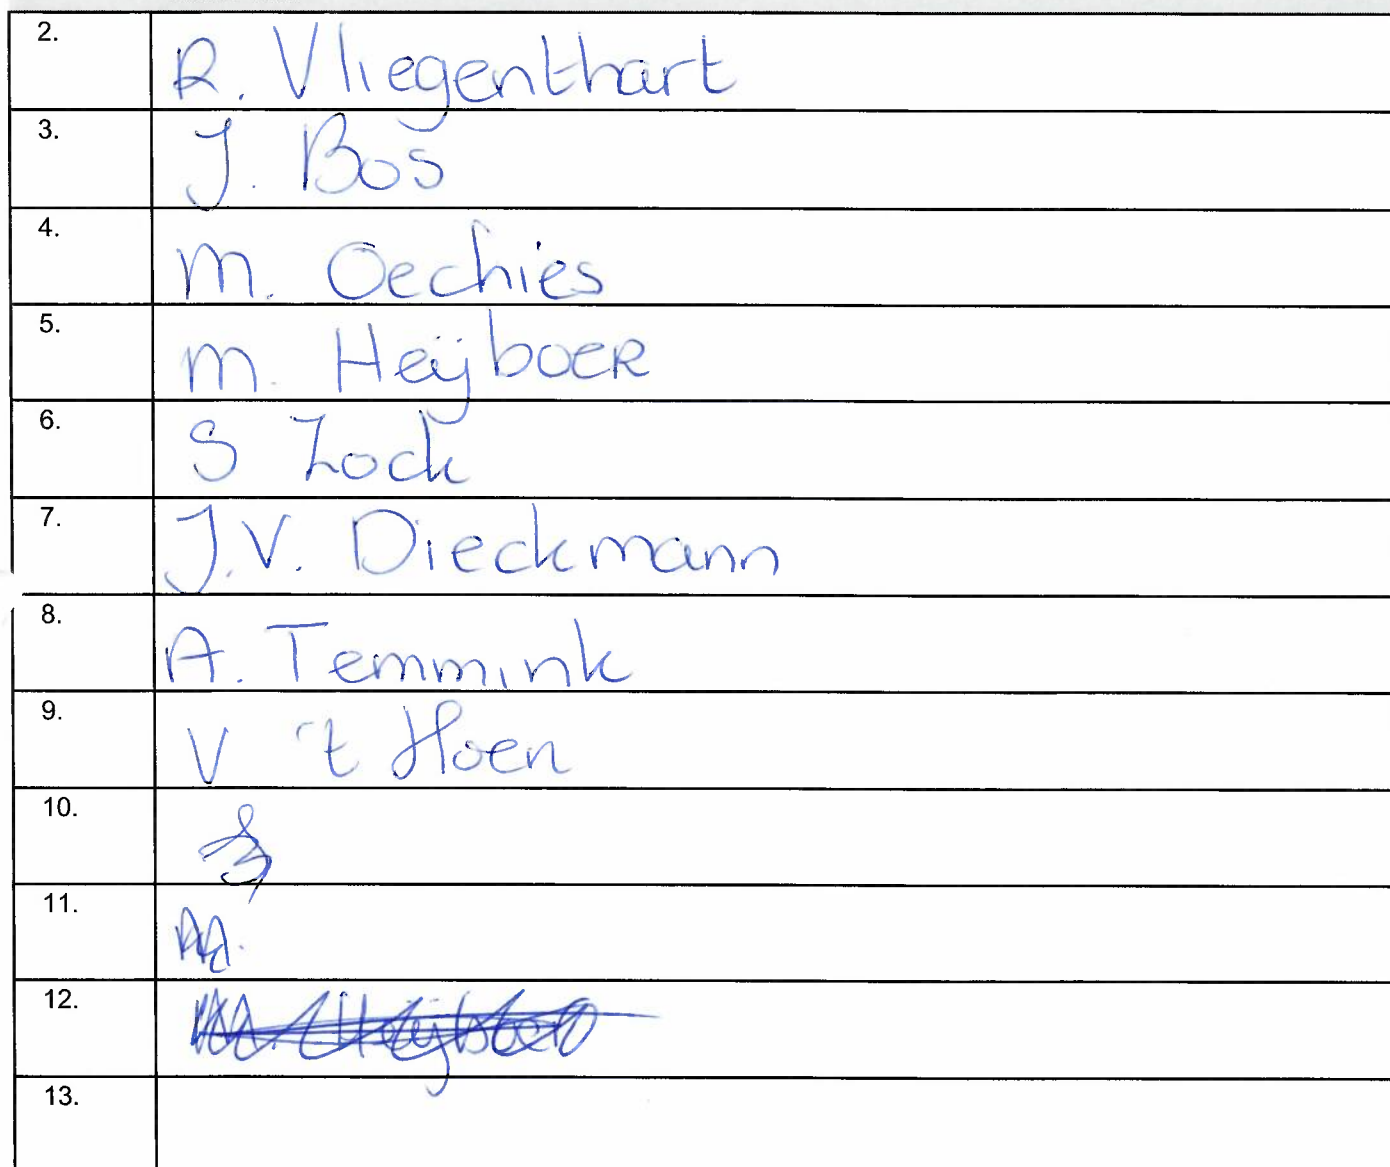 2. R. Vliegenthart
3. J. Bos
4. M. Oechies
5. M. Heijboer
6. S Zock
7. J.V. Dieckmann
8. A. Temmink
9. V 't Hoen
10.
11.
12.
13.